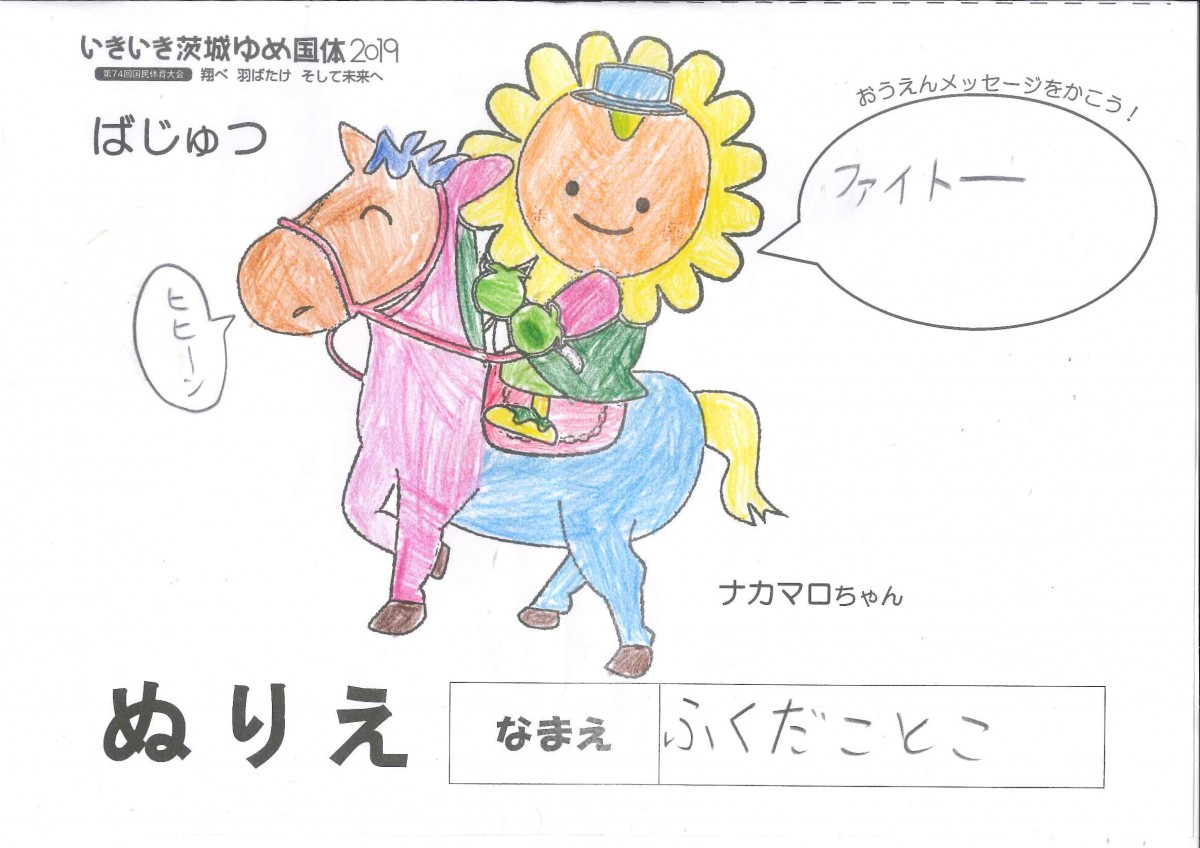 いきいき茨城ゆめ国体2019
第74回国民体育大会 翔べ 羽ばたけ そして未来へ
ばじゅつ
おうえんメッセージをかこう!
ファイトー
ヒヒーン
ナカマロちゃん
ぬりえ
なまえ ふくだことこ